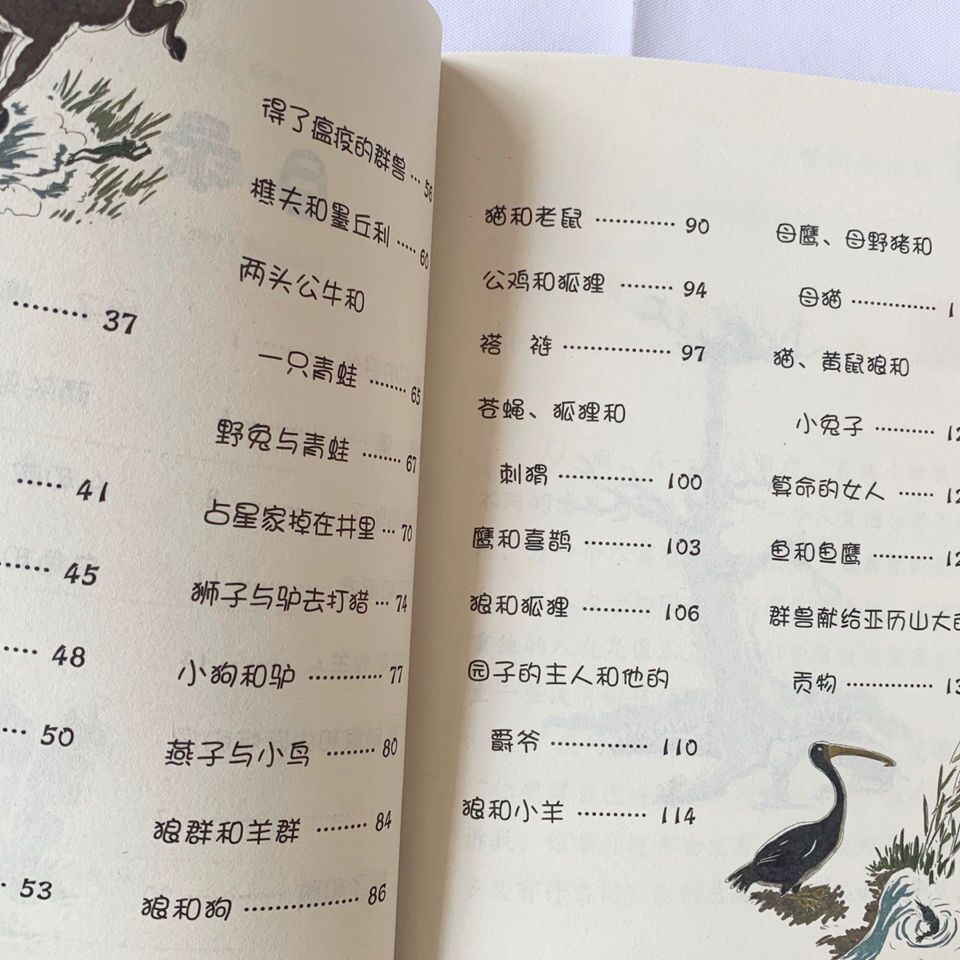 …… 37
…… 41
…… 45
…… 48
…… 50
…… 53
得了瘟疫的群兽 … 56
樵夫和墨丘利 …… 60
两头公牛和
一只青蛙 …… 65
野兔与青蛙 …… 67
占星家掉在井里 … 70
狮子与驴去打猎 … 74
小狗和驴 ………… 77
燕子与小鸟 …… 80
狼群和羊群 ……… 84
狼和狗 ………… 86
猫和老鼠 ………… 90
公鸡和狐狸 ……… 94
褡裢 ………… 97
苍蝇、狐狸和
刺猬 ………… 100
鹰和喜鹊 ……… 103
狼和狐狸 ………… 106
园子的主人和他的
爵爷 ………… 110
狼和小羊 ……… 114
母鹰、母野猪和
母猫 …………
猫、黄鼠狼和
小兔子 …………
算命的女人 ……
鱼和鱼鹰 ………
群兽献给亚历山大的
贡物 …………